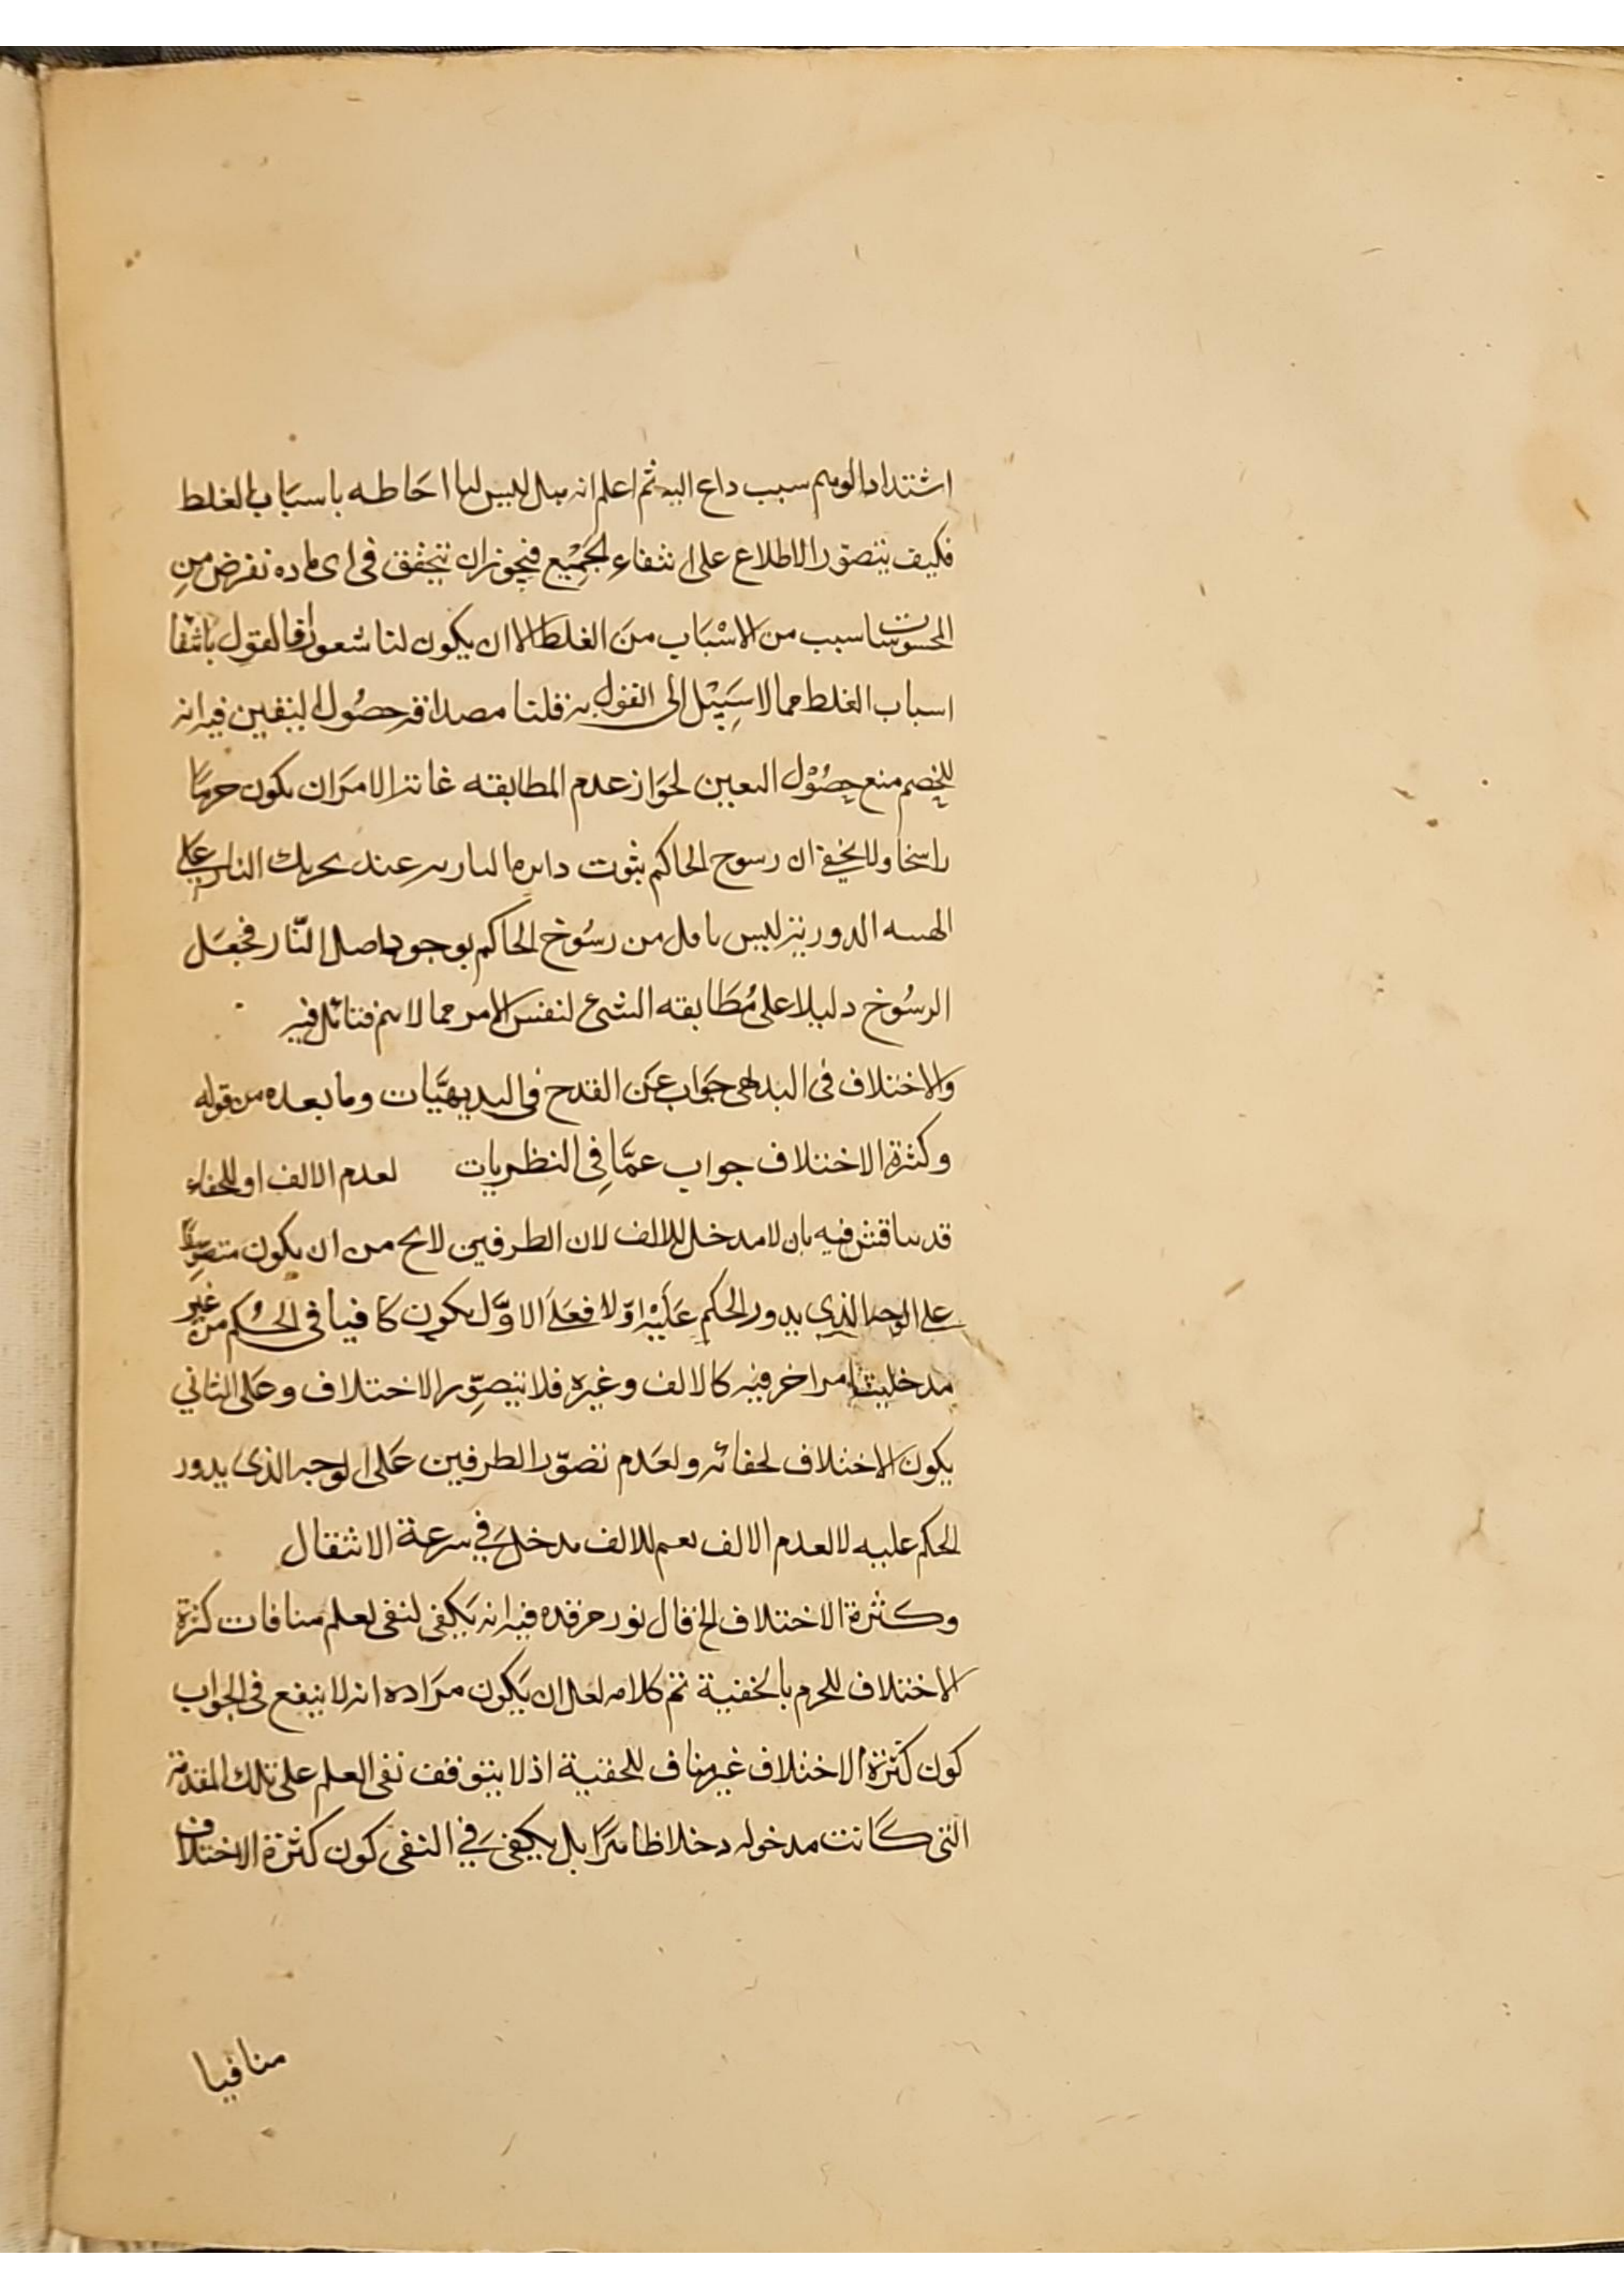 اشتداد الوهم سبب داع اليه ثم اعلم انه ليس لنا احاطه باسباب الغلط
فكيف يتصور الاطلاع على انتفاء الجميع فيجوز ان يتحقق فى اى ماده نفرض من
المحسوسات سبب من الاسباب من الغلط الا ان يكون لنا شعور فالقول بانتفا
اسباب الغلط مما لا سبيل الى القول به قلنا مصداقه حصول اليقين فيه انه
للخصم منع حصول اليقين لجواز عدم المطابقه غاية الامر ان يكون جزما
راسخا ولا يخفى ان رسوخ الحاكم بثوت دايره الناريه عند تحريك النار على
الهيئه الدوريه ليس باقل من رسوخ الحاكم بوجود اصل النار فجعل
الرسوخ دليلا على مطابقه الشئ لنفس الامر مما لا يتم فتأمل فيه
والاختلاف فى البديهى جواب عن القدح فى البديهيات وما بعده من قوله
وكثرة الاختلاف جواب عما في النظريات لعدم الالف او للخفاء
قد يناقش فيه بان لا مدخل للالف لان الطرفين لايخ من ان يكون متصورا
على الوجه الذى يدور الحكم عليه اولا فعلى الاول يكون كافيا فى الحكم من غير
مدخلية امر اخر فيه كالالف وغيره فلا يتصور الاختلاف وعلى الثاني
يكون الاختلاف لخفائه ولعدم تصور الطرفين على الوجه الذى يدور
الحكم عليه لا لعدم الالف نعم للالف مدخل في سرعة الانتقال
وكثرة الاختلاف الخ قال نور مرقده فيه انه يكفى لنفى لعلم منافات كثرة
الاختلاف للجزم بالحقية تم كلامه لعل ان يكون مراده انه لا ينفع فى الجواب
كون كثرة الاختلاف غير مناف للحقية اذ لا يتوقف نفى العلم على تلك المقدمة
التى كانت مدخوله دخلا ظاهرا بل يكفى في النفى كون كثرة الاختلاف
منافيا